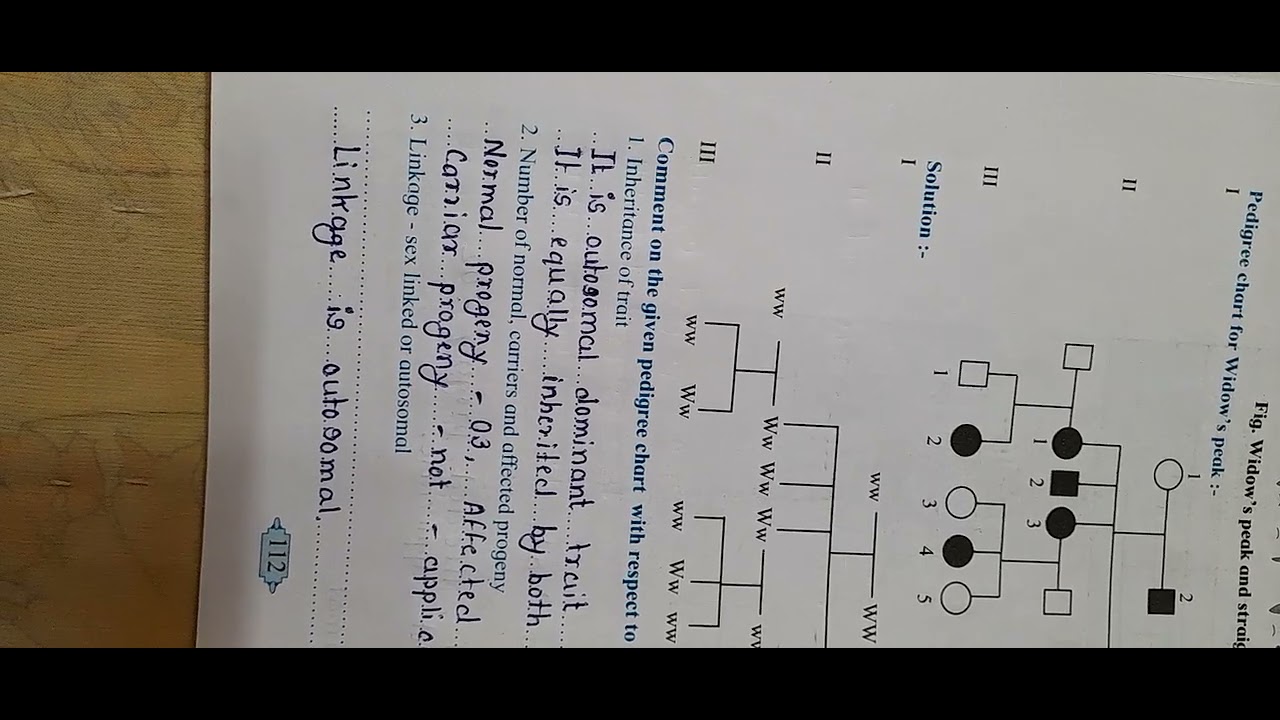 Fig. Widow's peak and straig
Pedigree chart for Widow's peak :-
I
1 2
II
1 2 3
III
1 2 3 4 5
Solution :-
I
ww WW
II
ww Ww Ww Ww ww
III
ww Ww ww Ww ww
Comment on the given pedigree chart with respect to
1. Inheritance of trait
It is autosomal dominant trait
It is equally inherited by both
2. Number of normal, carriers and affected progeny
Normal progeny - 03, Affected
Carrier progeny - not - applic
3. Linkage - sex linked or autosomal
Linkage is autosomal.
112